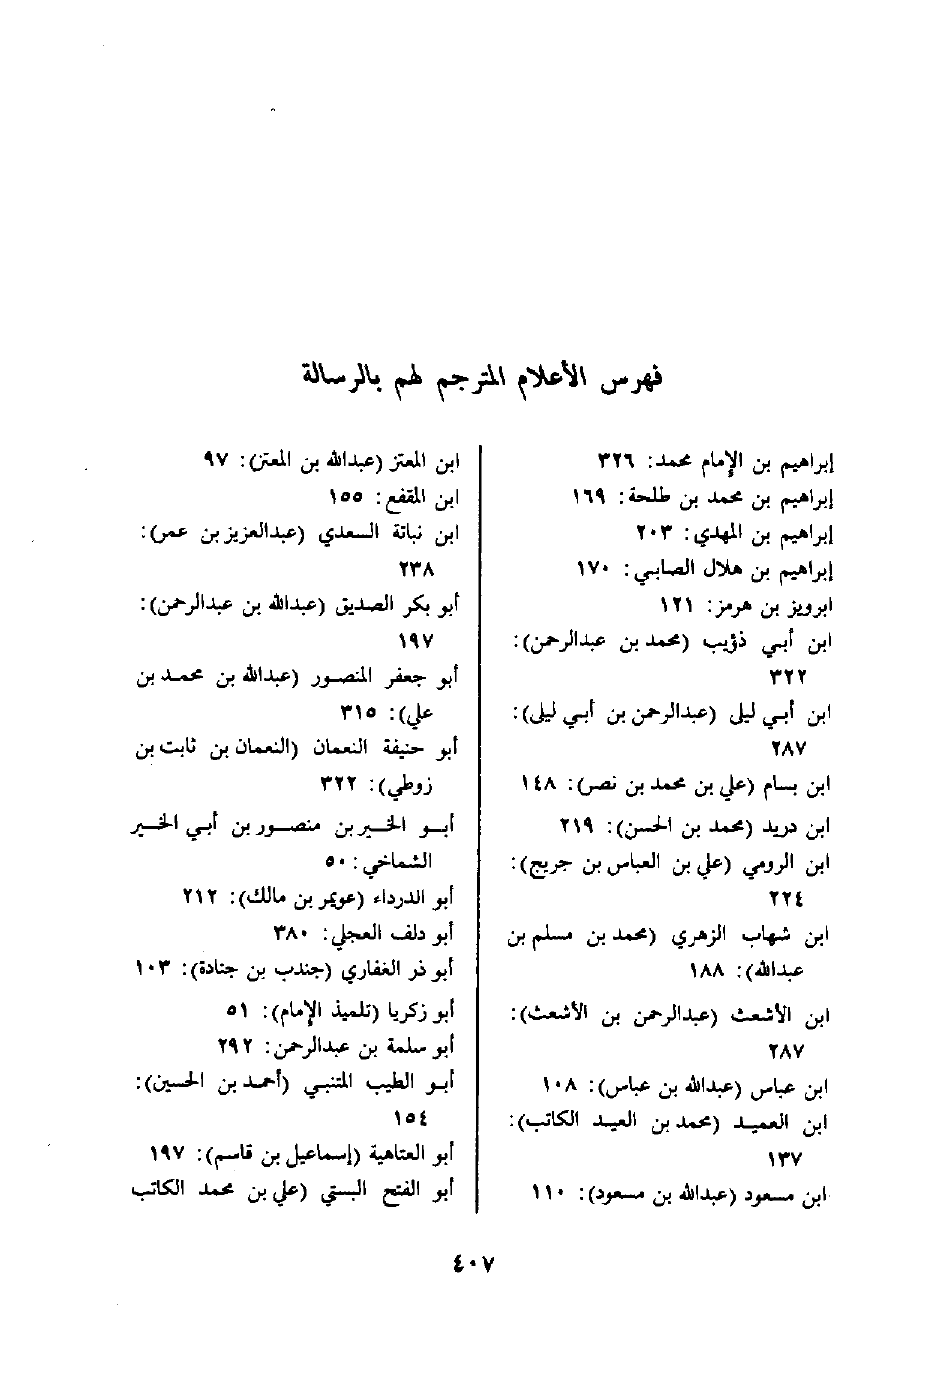 فهرس الأعلام المترجم لهم بالرسالة
إبراهيم بن الإمام محمد: ٣٢٦
إبراهيم بن محمد بن طلحة: ١٦٩
إبراهيم بن المهدي: ٢٠٣
إبراهيم بن هلال الصابي: ١٧٠
ابرويز بن هرمز: ١٢١
ابن أبي ذؤيب (محمد بن عبدالرحمن):
٣٢٢
ابن أبي ليلى (عبدالرحمن بن أبي ليلى):
٢٨٧
ابن بسام (علي بن محمد بن نصر): ١٤٨
ابن دريد (محمد بن الحسن): ٢١٩
ابن الرومي (علي بن العباس بن جريج):
٢٢٤
ابن شهاب الزهري (محمد بن مسلم بن
عبدالله): ١٨٨
ابن الأشعث (عبدالرحمن بن الأشعث):
٢٨٧
ابن عباس (عبدالله بن عباس): ١٠٨
ابن العميد (محمد بن العيد الكاتب):
١٣٧
ابن مسعود (عبدالله بن مسعود): ١١٠
ابن المعتز (عبدالله بن المعتز): ٩٧
ابن المقفع: ١٥٥
ابن نباتة السعدي (عبدالعزيز بن عمر):
٢٣٨
أبو بكر الصديق (عبدالله بن عبدالرحمن):
١٩٧
أبو جعفر المنصور (عبدالله بن محمد بن
علي): ٣١٥
أبو حنيفة النعمان (النعمان بن ثابت بن
زوطي): ٣٢٢
أبو الخير بن منصور بن أبي الخير
الشماخي: ٥٠
أبو الدرداء (عويمر بن مالك): ٢١٢
أبو دلف العجلي: ٣٨٠
أبو ذر الغفاري (جندب بن جنادة): ١٠٣
أبو زكريا (تلميذ الإمام): ٥١
أبو سلمة بن عبدالرحمن: ٢٩٢
أبو الطيب المتنبي (أحمد بن الحسين):
١٥٤
أبو العتاهية (إسماعيل بن قاسم): ١٩٧
أبو الفتح البستي (علي بن محمد الكاتب
٤٠٧